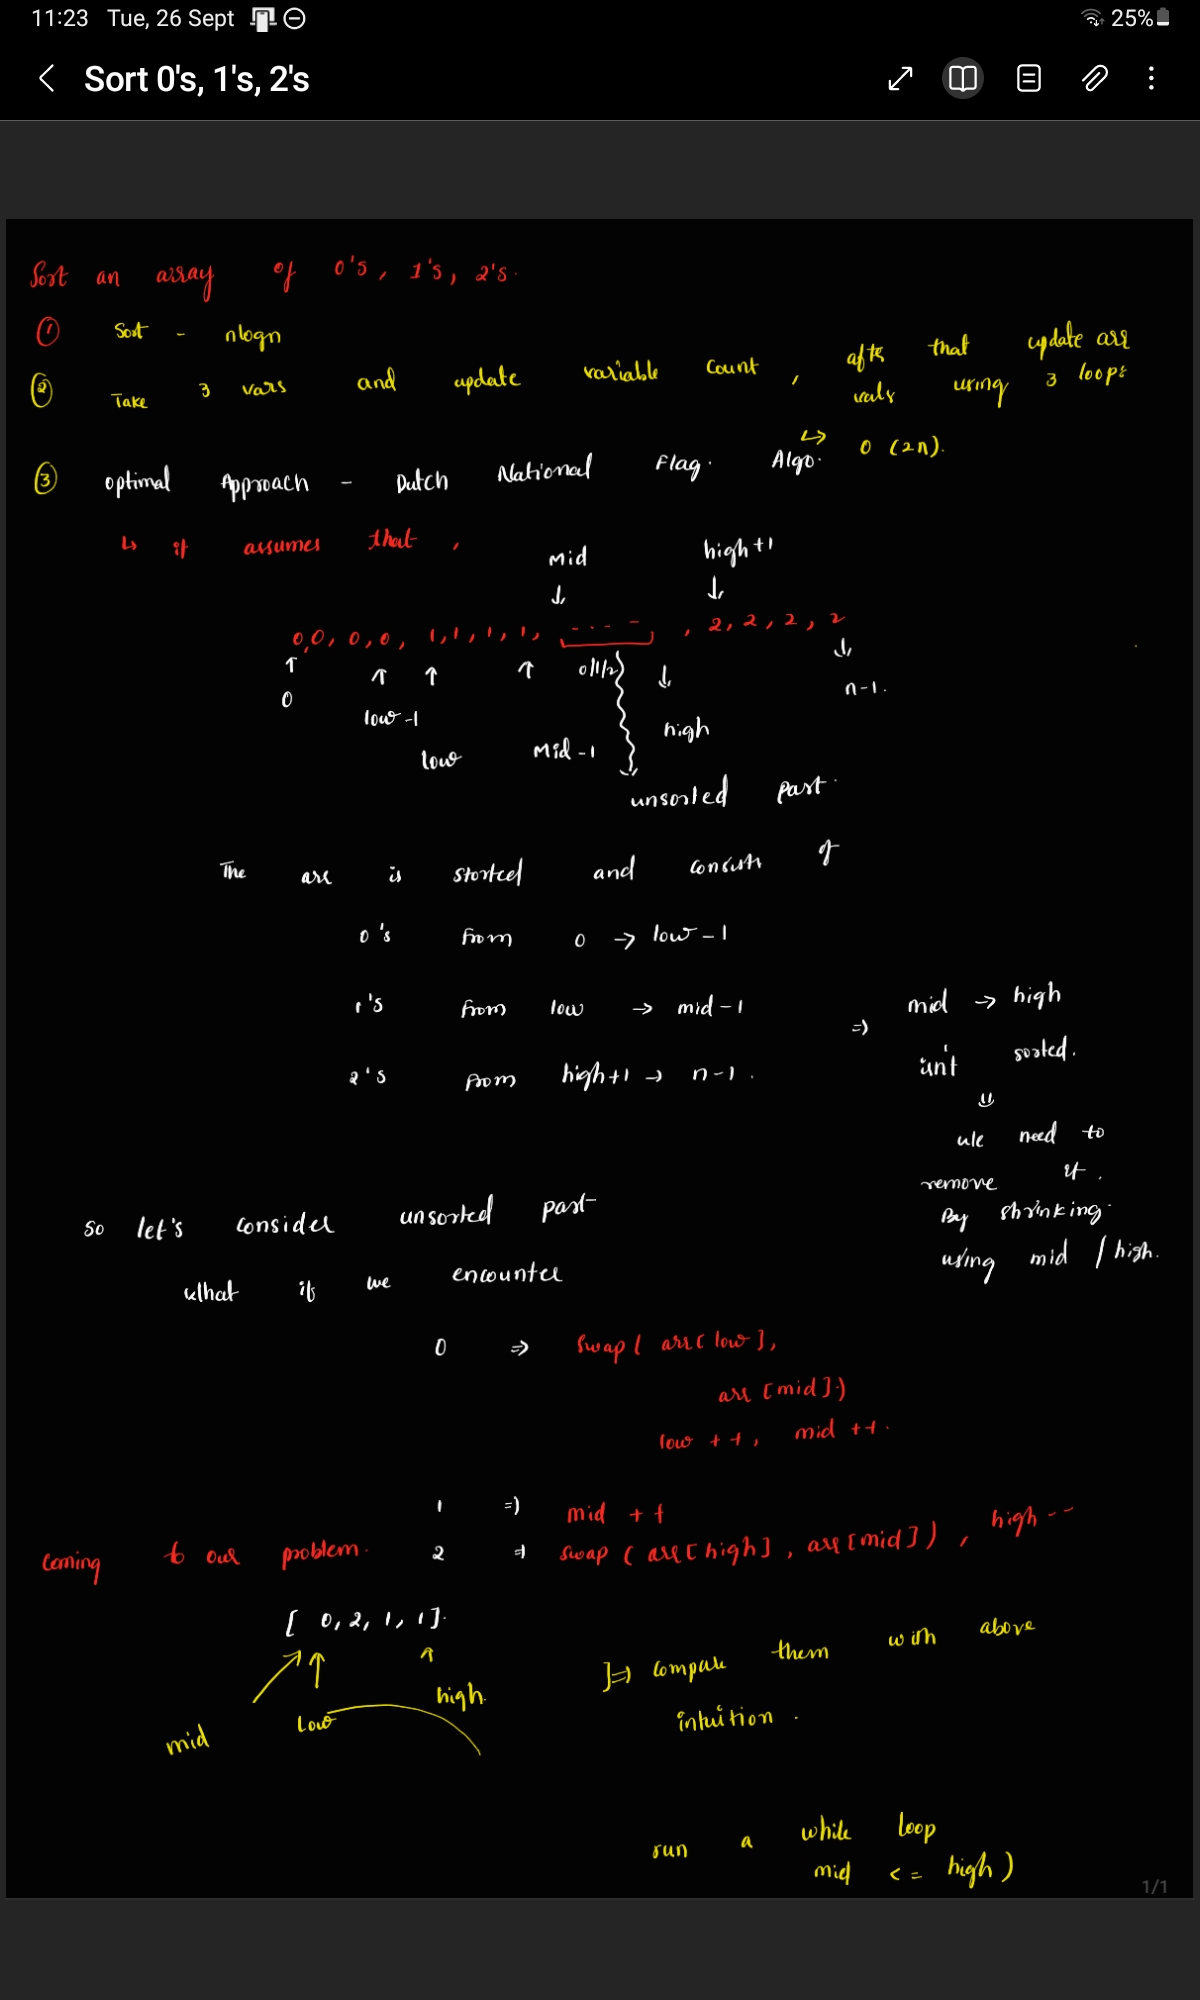 11:23 Tue, 26 Sept 25%
Sort 0's, 1's, 2's
Sort an array of 0's, 1's, 2's.
① Sort - nlogn
② Take 3 vars and update variable count, after that update arr
vals using 3 loops
↳ O (2n).
③ optimal Approach - Dutch National Flag. Algo.
↳ it assumes that,
mid high+1
0,0, 0,0, 1,1,1,1, ---- , 2,2,2,2
0 low-1 0/1/2 n-1.
low mid-1 high
unsorted part.
The arr is storted and consists of
0's from 0 → low-1
1's from low → mid-1
2's from high+1 → n-1.
⇒ mid → high
isn't sorted.
we need to
remove it.
By shrinking.
using mid / high.
So let's consider unsorted part
what if we encounter
0 ⇒ swap( arr[low],
arr[mid])
low++, mid++.
1 ⇒ mid ++
2 ⇒ swap (arr[high], arr[mid]), high--
Coming to our problem.
[ 0,2,1,1].
mid Low high.
]⇒ compare them with above
intuition.
run a while loop
mid <= high)
1/1